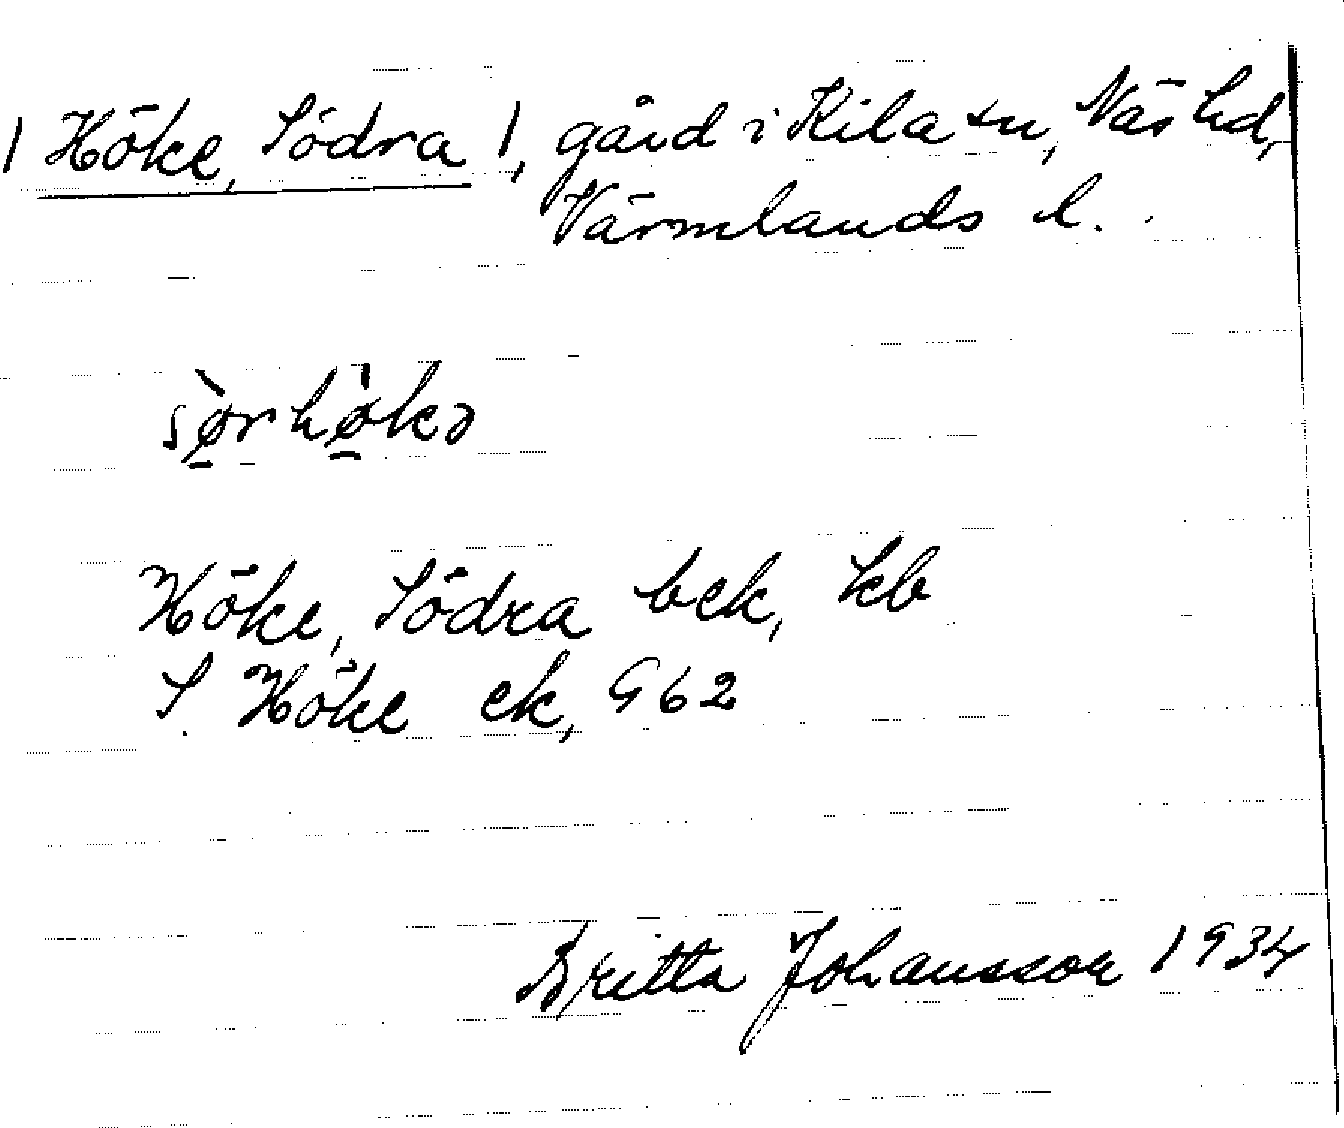 / Höke, Södra /, gård i Kila sn, Näs hd,
Värmlands l.
sø̱̀rhø̱̍kə
Höke, Södra bek, kb
S. Höke ek, 962
Britta Johansson 1934